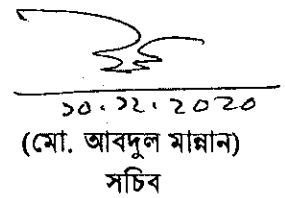 ১০.১২.২০২০
(মো. আবদুল মান্নান)
সচিব